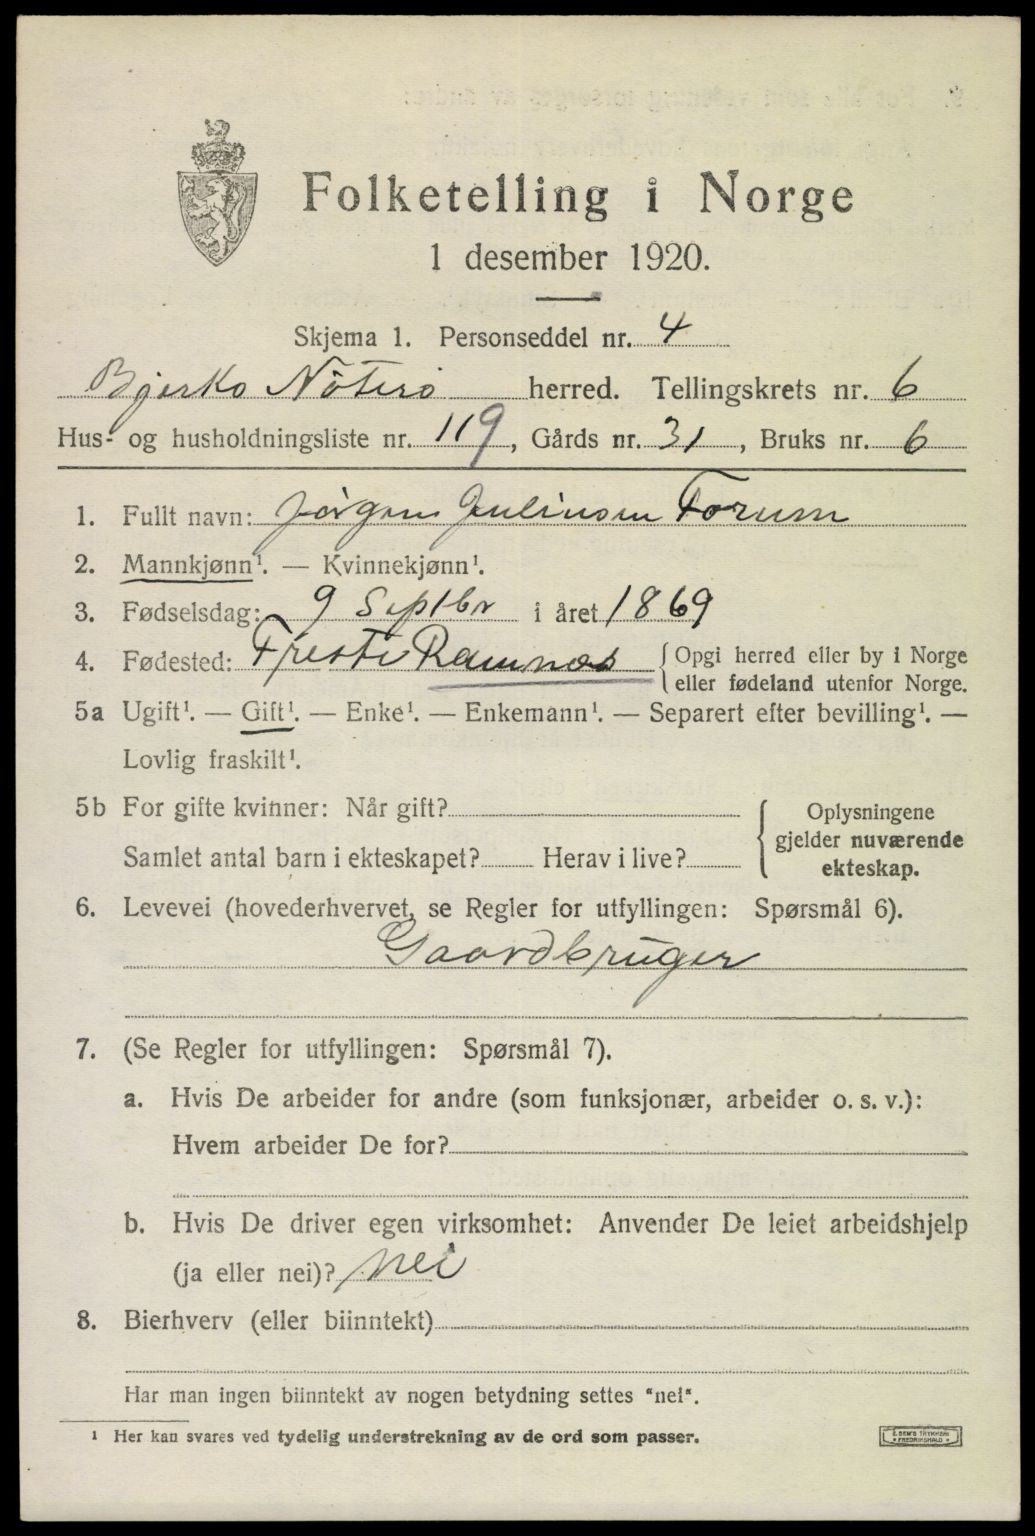 Folketelling i Norge
1 desember 1920.
Skjema 1. Personseddel nr. 4
Bjerkø Nøterø herred. Tellingskrets nr. 6
Hus- og husholdningsliste nr. 119, Gårds nr. 31, Bruks nr. 6
1. Fullt navn: Jørgen Julinsen Forum
2. Mannkjønn¹. — Kvinnekjønn¹.
3. Fødselsdag: 9 Septbr i året 1869
4. Fødested: Freste Ramnæs { Opgi herred eller by i Norge
eller fødeland utenfor Norge.
5a Ugift¹. — Gift¹. — Enke¹. — Enkemann¹. — Separert efter bevilling¹. —
Lovlig fraskilt¹.
5b For gifte kvinner: Når gift? { Oplysningene
gjelder nuværende
Samlet antal barn i ekteskapet? Herav i live?
ekteskap.
6. Levevei (hovederhvervet, se Regler for utfyllingen: Spørsmål 6).
Gaardbruger
7. (Se Regler for utfyllingen: Spørsmål 7).
a. Hvis De arbeider for andre (som funksjonær, arbeider o. s. v.):
Hvem arbeider De for?
b. Hvis De driver egen virksomhet: Anvender De leiet arbeidshjelp
(ja eller nei)? nei
8. Bierhverv (eller biinntekt)
Har man ingen biinntekt av nogen betydning settes "nei".
¹ Her kan svares ved tydelig understrekning av de ord som passer.